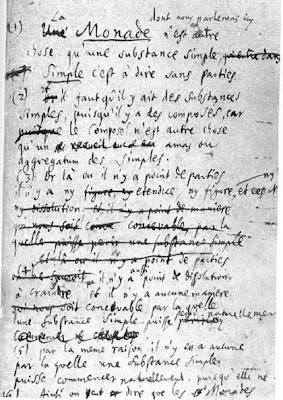 La dont nous parlerons icy
(1) Une Monade n'est autre
chose qu'une substance simple,
Simple c'est à dire sans parties
(2) il faut qu'il y ait des substances
simples, puisqu'il y a des composes, car
le composé n'est autre chose
qu'un amas ou
aggregatum des simples.
(3) Or là ou il n'y a point de parties
il n'y a ny etendue ny figure, ny
dissolution. et il n'y a point de maniere
par la
quelle puisse perir une substance simple
Et là ou il n'y a point de parties
il n'y a point de dissolution
à craindre et il n'y a aucune maniere
soit concevable par la quelle
une substance simple puisse perir naturellement
(5) par la même raison il n'y en a aucune
par la quelle une substance simple
puisse commencer naturellement, puisqu'elle ne
Ainsi on peut dire que les Monades